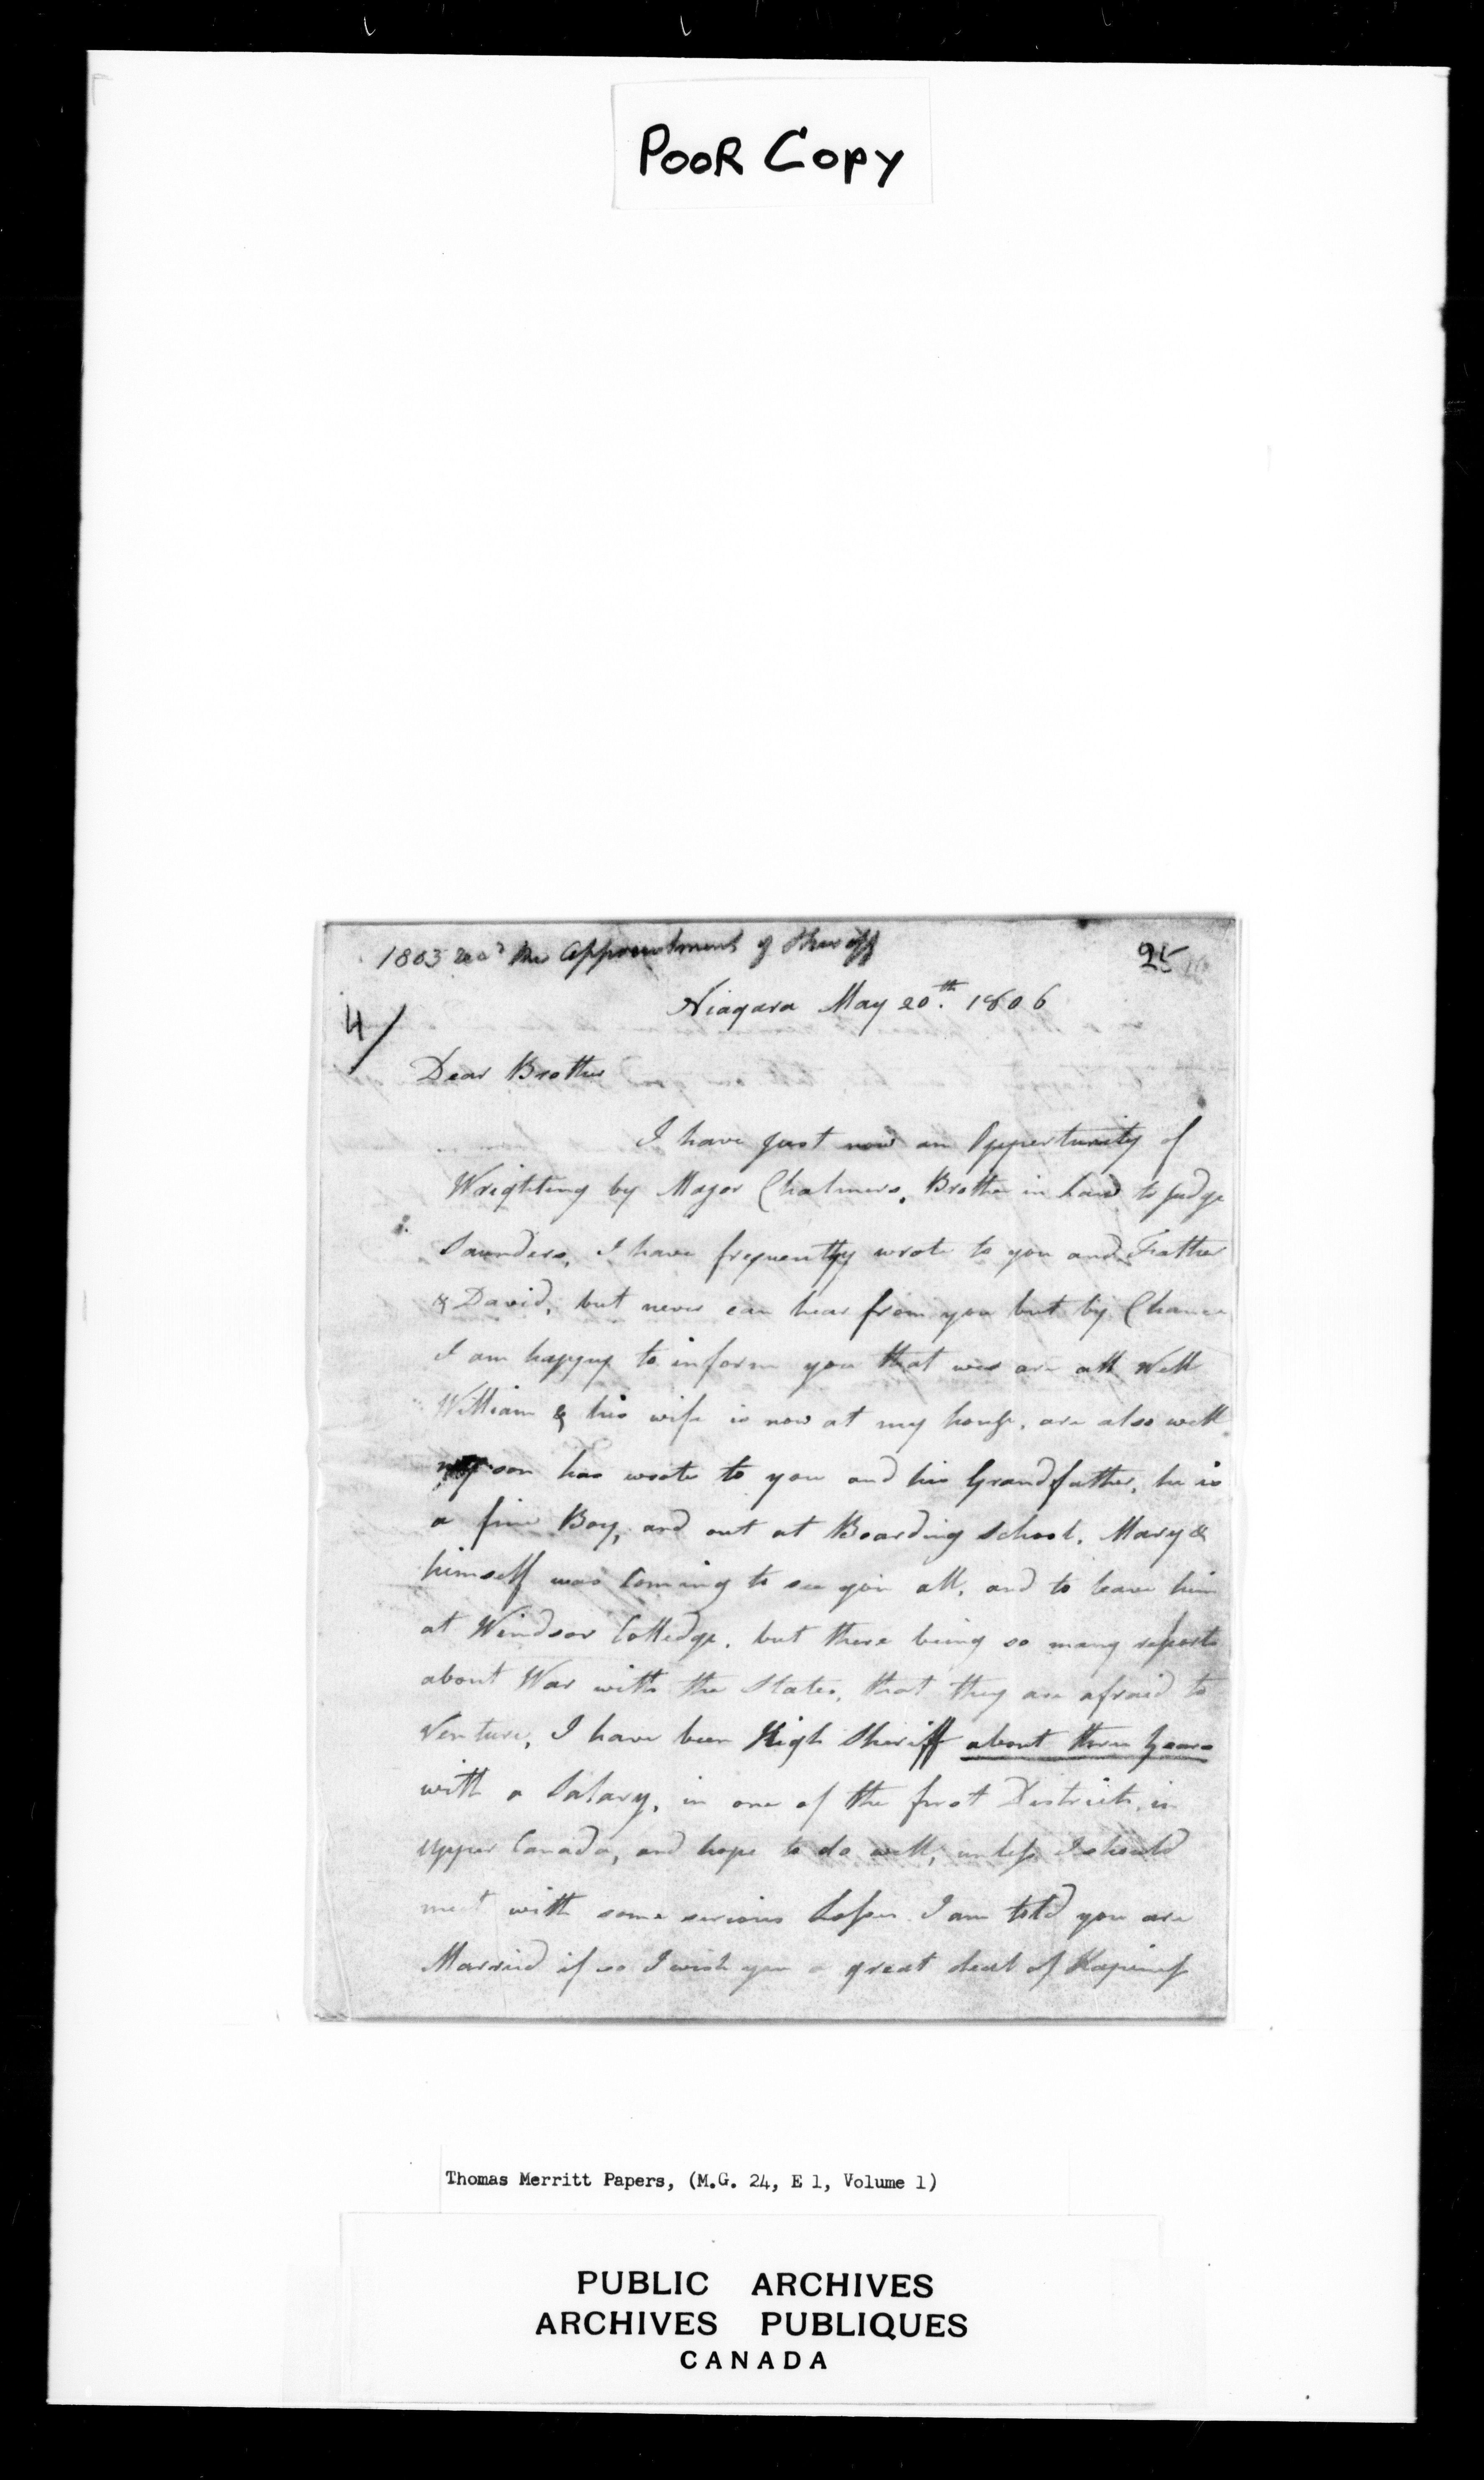 POOR COPY
1803 recd the appointment of Sheriff
25
4/
Niagara May 20th. 1806
Dear Brother
I have just now an Oppertunity of
Wrighting by Major Chalmers, Brother in Law to Judge
Saunders, I have frequently wrote to you and Father
& David, but never can hear from you but by Chance
I am happy to inform you that wee are all Well
William & his wife is now at my house, are also well
my son has wrote to you and his Grandfather, he is
a fine Boy, and out at Boarding School. Mary &
himself was Coming to see you all, and to leave him
at Windsor Colledge, but there being so many reports
about War with the States, that they are afraid to
Venture, I have been High Sheriff about three Years
with a Salary, in one of the first Districts in
Upper Canada, and hope to do well, unless I should
meet with some serious Losses I am told you are
Married if so I wish you a great deal of Hapiness
Thomas Merritt Papers, (M.G. 24, E 1, Volume 1)
PUBLIC ARCHIVES
ARCHIVES PUBLIQUES
CANADA